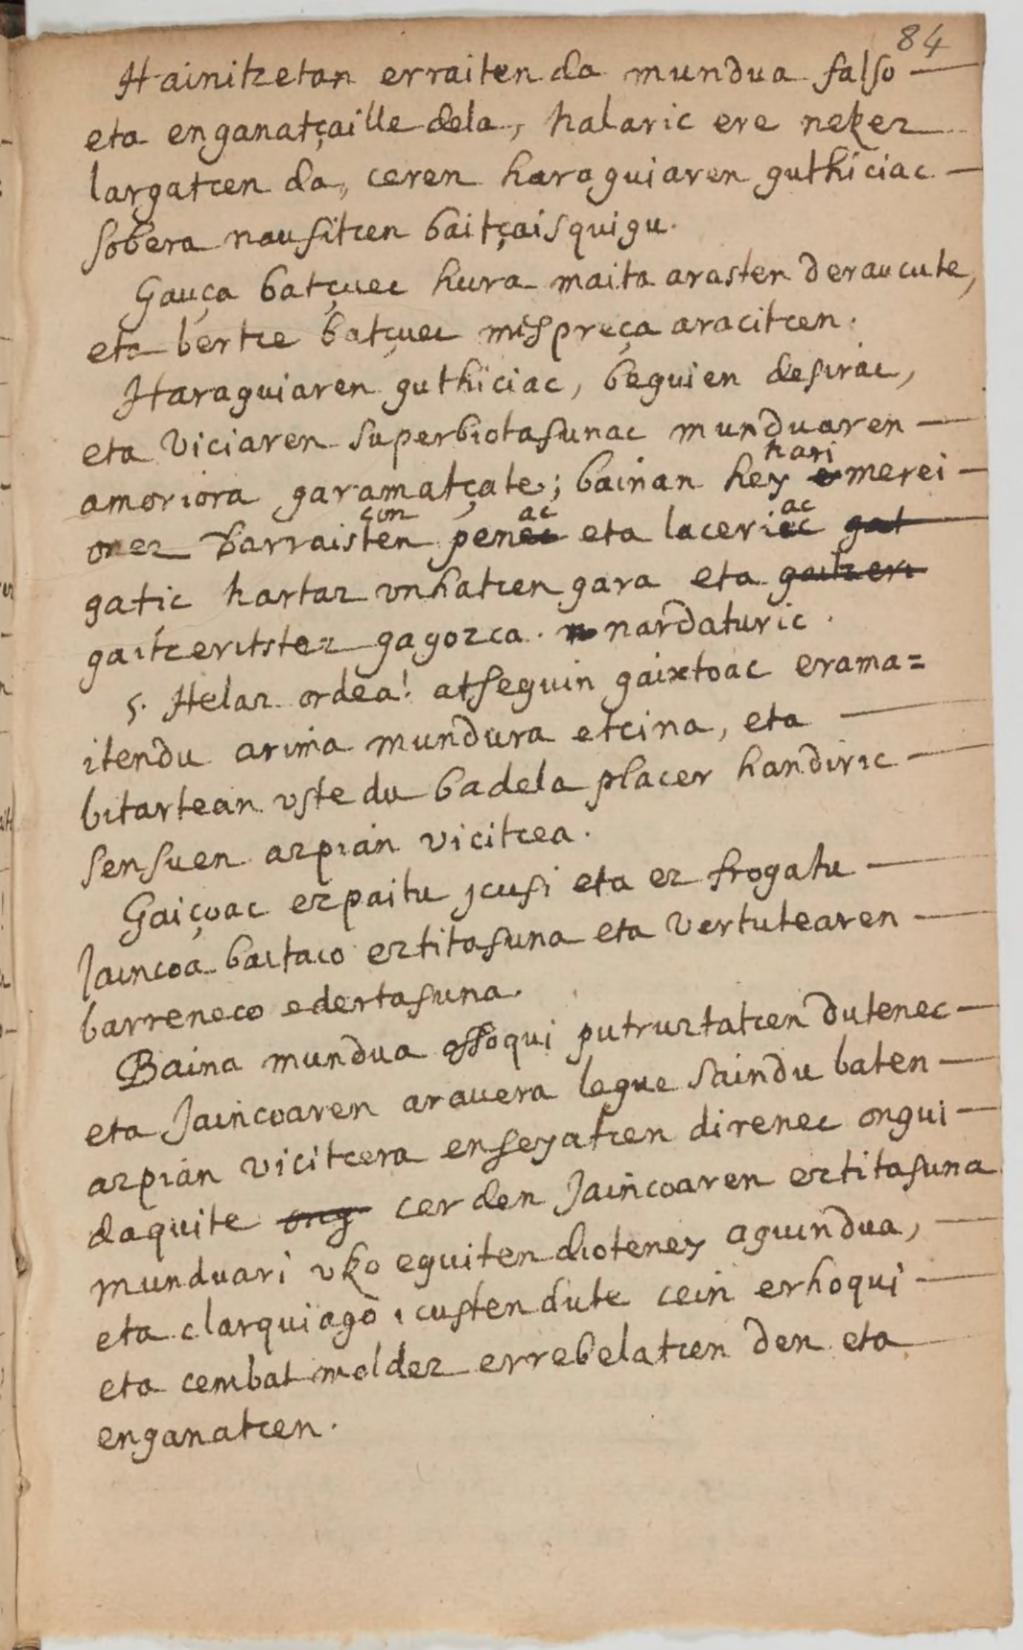 84
Hainitzetan erraiten da mundua falso —
eta enganatçaille dela, halaric ere nekez
largatcen da, ceren haraguiaren guthiciac —
sobera nausitcen baitçaisquigu.
Gauça batçuec hura maita arasten deraucute,
eta bertce batçuec mispreça aracitcen.
Haraguiaren guthiciac, beguien desirac,
eta viciaren superbiotasunac munduaren —
hari
amoriora garamatçate; bainan hey e merei —
con ac ac
onez darraisten penec eta laceriec gat
gatic hartaz unhatcen gara eta gaitzeri
gaitceritstez gagozca. n nardaturic.
5. Helaz ordea! atseguin gaixtoac erama=
itendu arima mundura etcina, eta —
bitartean uste du badela placer handiric —
sensuen azpian vicitcea.
Gaiçoac ezpaitu jcusi eta ez frogatu —
Jaincoa baitaco eztitasuna eta vertutearen —
barreneco edertasuna.
Baina mundua ossoqui putruztatcen dutenec —
eta Jaincoaren arauera legue saindu baten —
azpian vicitcera enseyatcen direnec ongui —
daquite ong cer den Jaincoaren eztitasuna
munduari uko eguiten dioteney aguindua, —
eta clarquiago icusten dute cein erhoqui —
eta cembat moldez errebelatcen den eta
enganatcen.